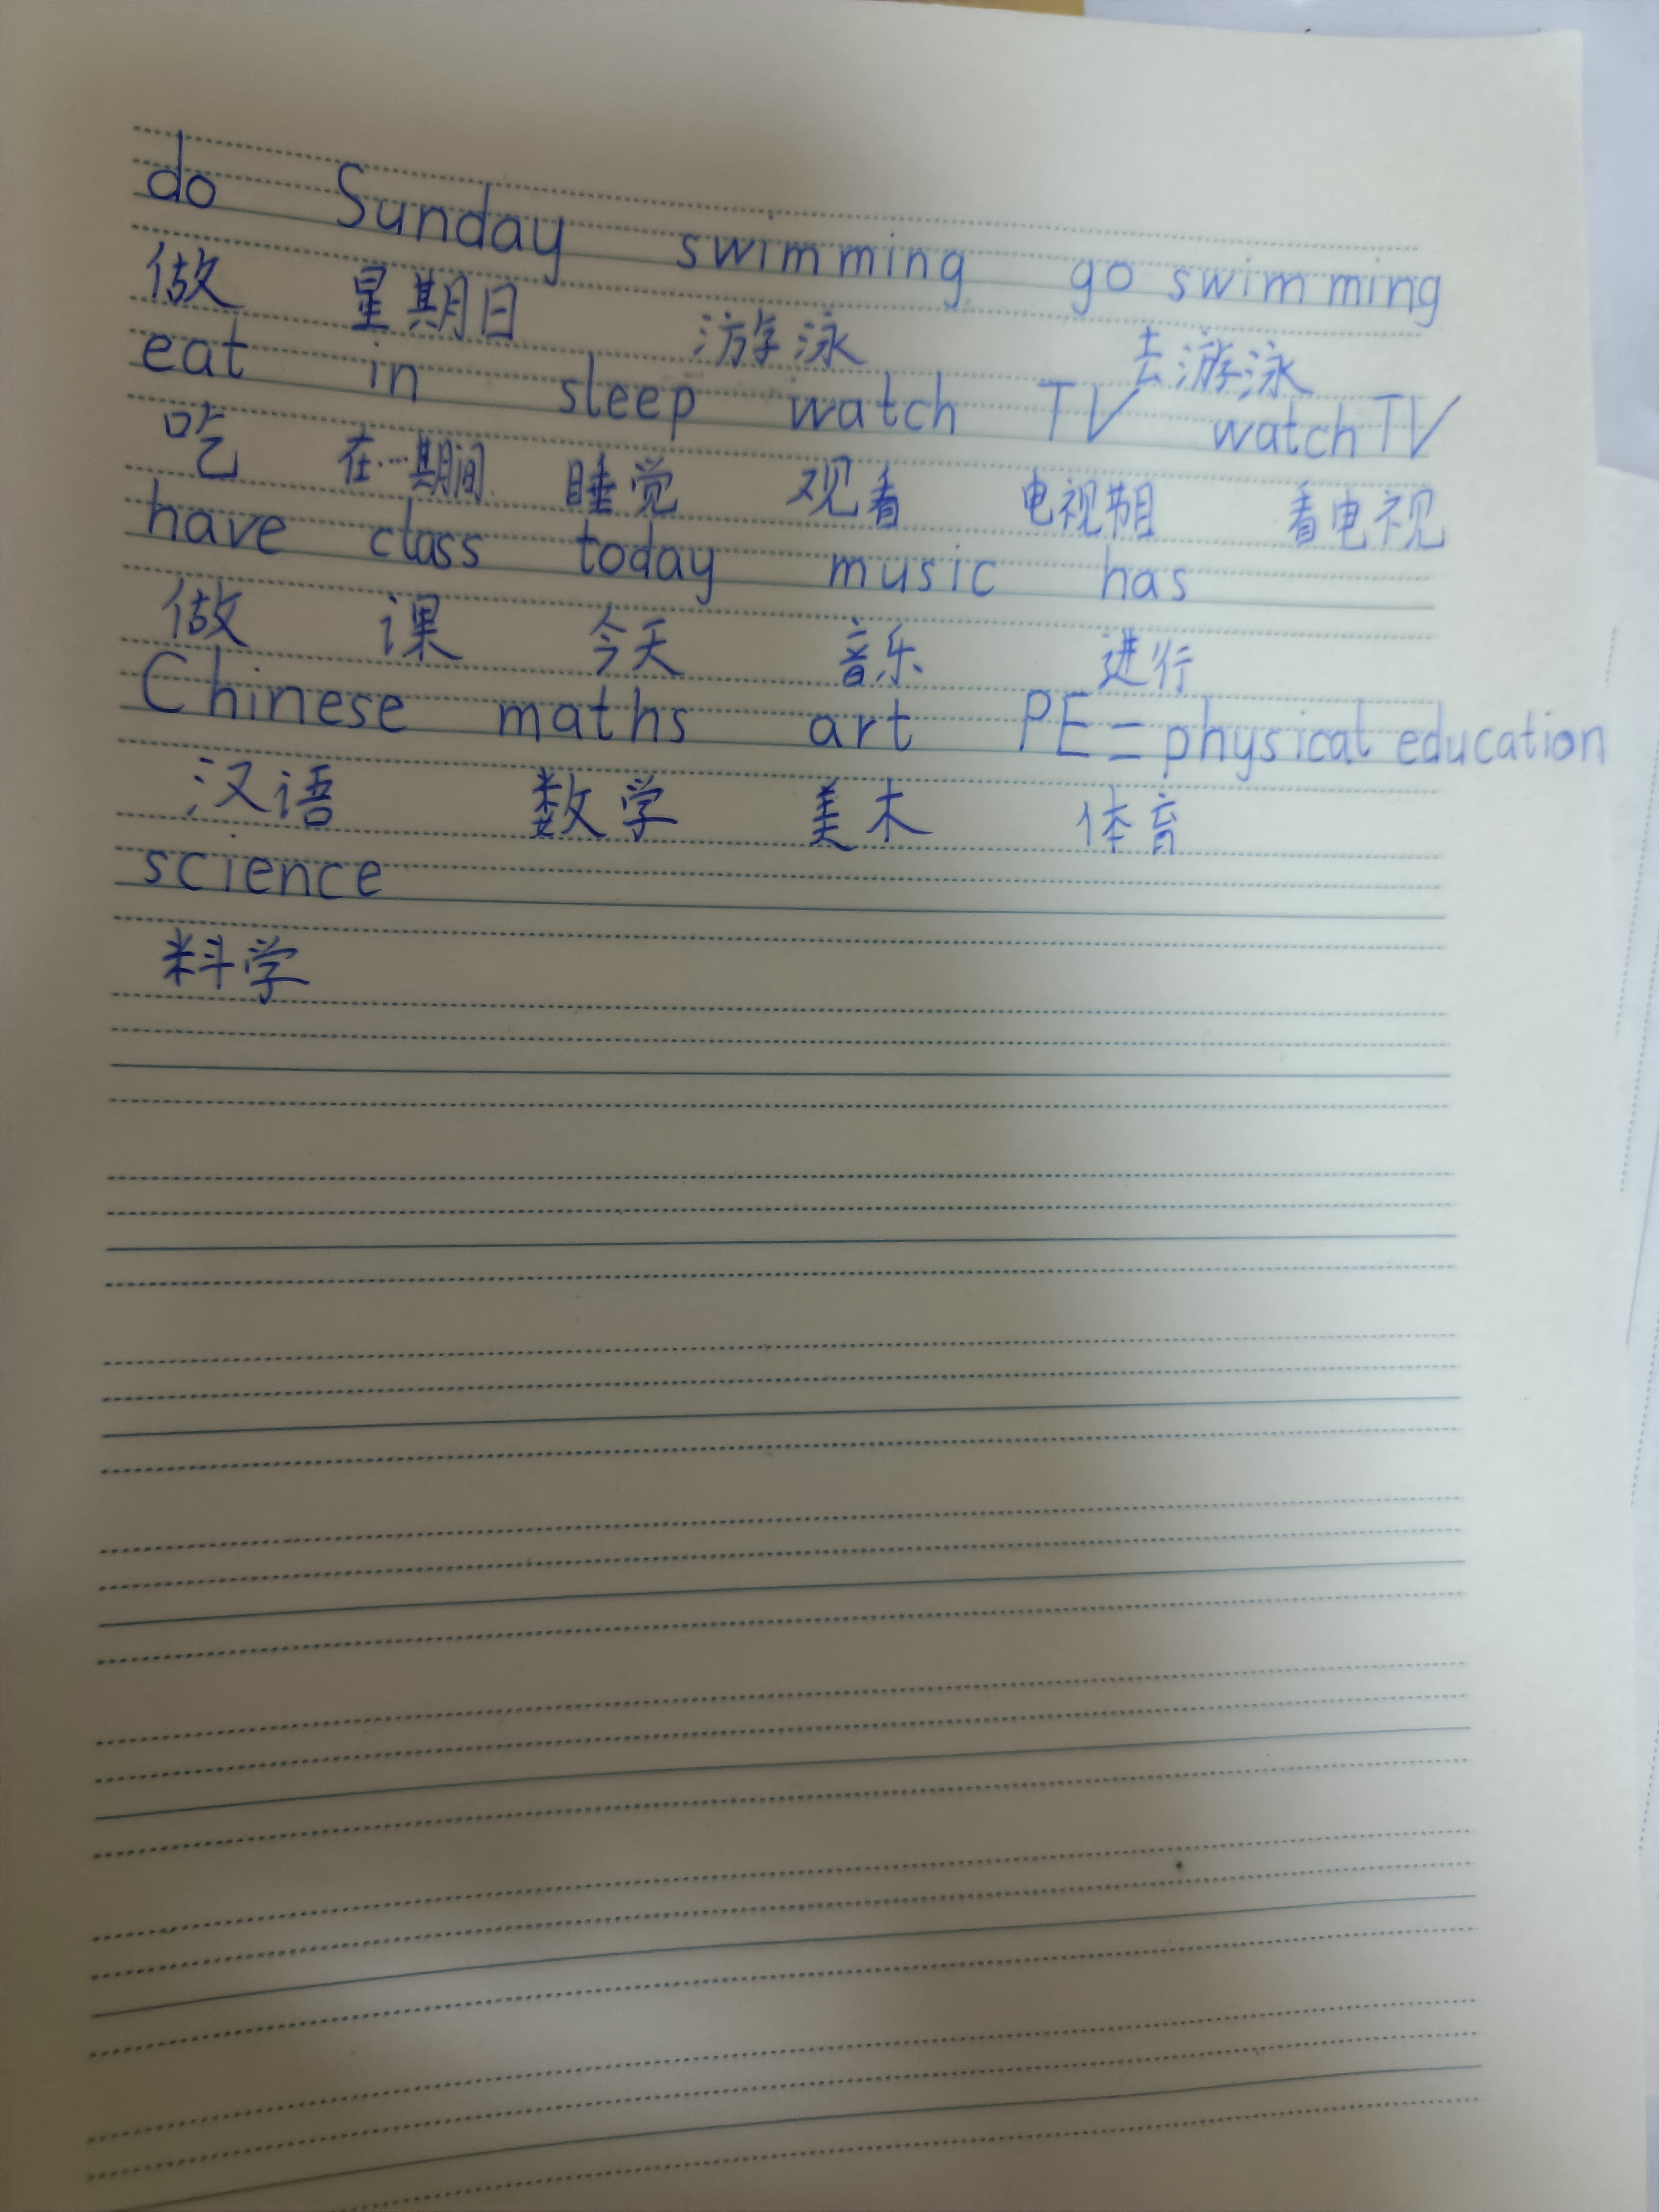 do Sunday swimming go swimming
做 星期日 游泳 去游泳
eat in sleep watch TV watch TV
吃 在…期间 睡觉 观看 电视节目 看电视
have class today music has
做 课 今天 音乐 进行
Chinese maths art PE = physical education
汉语 数学 美木 体育
science
料学